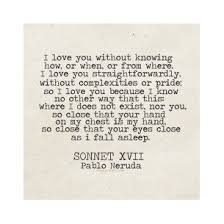 I love you without knowing
how, or when, or from where.
I love you straightforwardly,
without complexities or pride;
so I love you because I know
no other way that this:
where I does not exist, nor you,
so close that your hand
on my chest is my hand,
so close that your eyes close
as i fall asleep.
SONNET XVII
Pablo Neruda